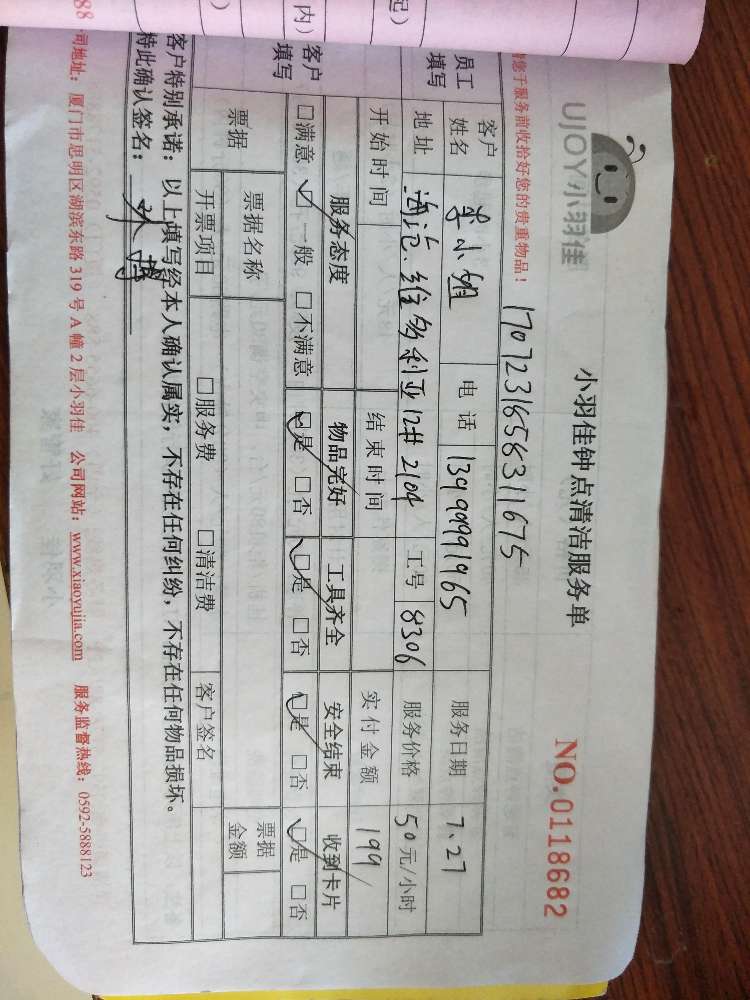 UJOY小羽佳
小羽佳钟点清洁服务单
NO.0118682
请您于服务前收拾好您的贵重物品！
17072316585311675
员工填写
客户姓名
李小姐
电话
13999991965
服务日期
7.27
地址
海沧.维多利亚12# 2104
工号
8306
服务价格
50元/小时
开始时间
结束时间
实付金额
199
客户填写
服务态度
物品完好
工具齐全
安全结束
收到卡片
□满意 ☑一般 □不满意
☑是 □否
☑是 □否
☑是 □否
☑是 □否
票据
票据名称
票据金额
开票项目
□服务费 □清洁费
客户签名
客户特别承诺：以上填写经本人确认属实，不存在任何纠纷，不存在任何物品损坏。
特此确认签名：
司地址：厦门市思明区湖滨东路 319 号 A 幢 2 层小羽佳 公司网站：www.xiaoyujia.com 服务监督热线：0592-5888123
起）
内）
）
88